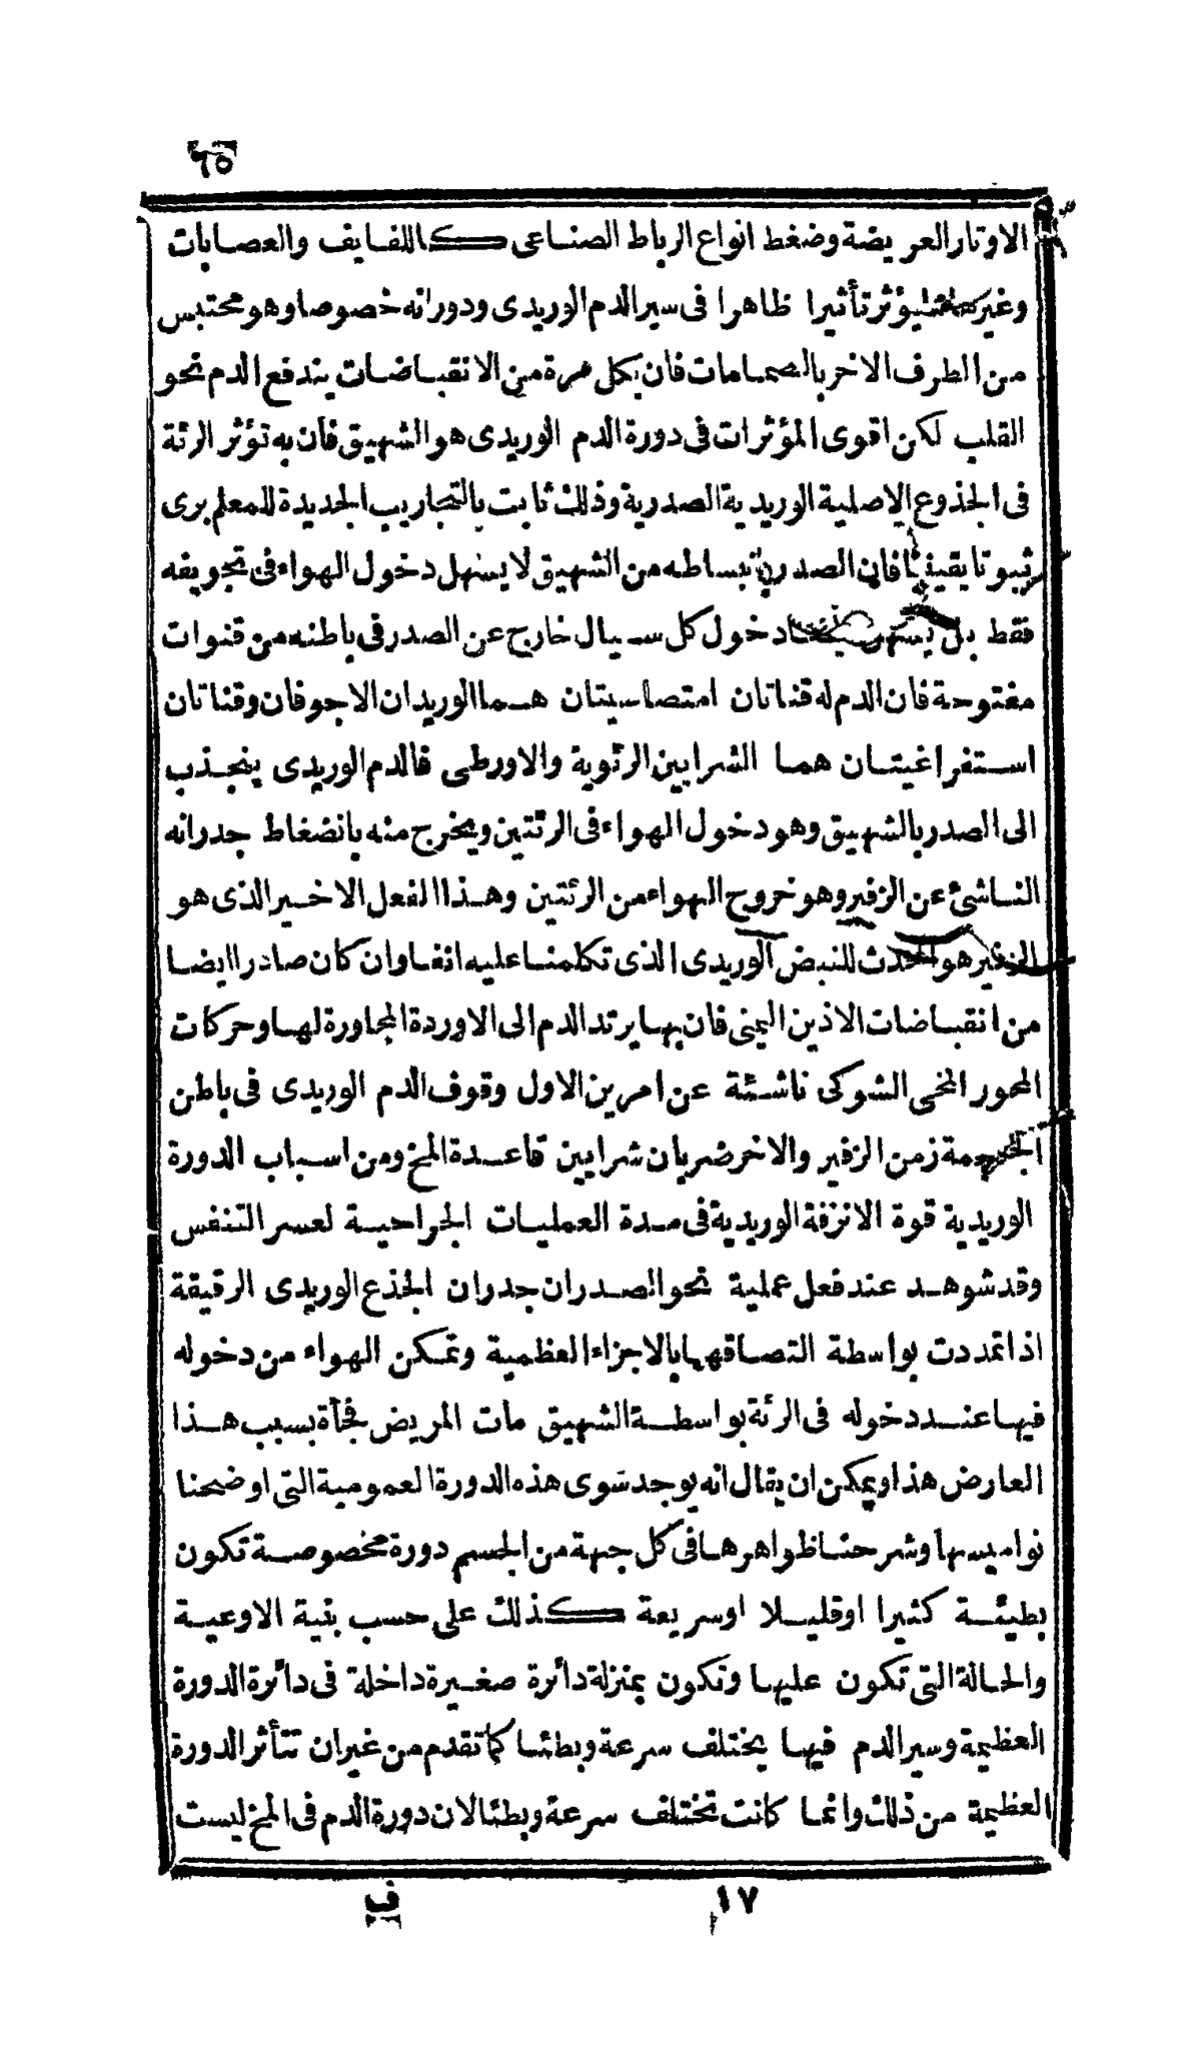 ٦٥
الاوتار العريضة وضغط انواع الرباط الصناعى كاللفايف والعصابات
يؤثر تأثيرا ظاهرا فى سير الدم الوريدى ودورانه خصوصا وهو محتبس
من الطرف الاخر بالصمامات فان بكل مرة من الانقباضات يندفع الدم نحو
القلب لكن اقوى المؤثرات فى دورة الدم الوريدى هو الشهيق فان به تؤثر الرئة
فى الجذوع الاصلية الوريدية الصدرية وذلك ثابت بالتجاريب الجديدة للمعلم برى
ثبوتا يقينيا فان الصدر بانبساطه من الشهيق لا يسهل دخول الهواء فى تجويفه
فقط بل دخول كل سيال خارج عن الصدر فى باطنه من قنوات
مفتوحة فان الدم له قناتان امتصاسيتان هما الوريدان الاجوفان وقناتان
استفراغيتان هما الشرايين الرئوية والاورطى فالدم الوريدى ينجذب
الى الصدر بالشهيق وهو دخول الهواء فى الرئتين ويخرج منه بانضغاط جدرانه
الناشئ عن الزفير وهو خروج الهواء من الرئتين وهذا الفعل الاخير الذى هو
الزفير هو المحدث للنبض الوريدى الذى تكلمنا عليه انفا وان كان صادرا ايضا
من انقباضات الاذين اليمنى فان بها يرتد الدم الى الاوردة المجاورة لها وحركات
المحور المخى الشوكى ناشئة عن امرين الاول وقوف الدم الوريدى فى باطن
الجمجمة زمن الزفير والاخر ضربان شرايين قاعدة المخ ومن اسباب الدورة
الوريدية قوة الانزفة الوريدية فى مدة العمليات الجراحية لعسر التنفس
وقد شوهد عند فعل عملية نحو الصدر ان جدران الجذع الوريدى الرقيقة
اذا تمددت بواسطة التصاقها بالاجزاء العظمية وتمكن الهواء من دخوله
فيها عند دخوله فى الرئة بواسطة الشهيق مات المريض فجأة بسبب هذا
العارض هذا ويمكن ان يقال انه يوجد سوى هذه الدورة العمومية التى اوضحنا
نواميسها وشرحنا ظواهرها فى كل جهة من الجسم دورة مخصوصة تكون
بطيئة كثيرا او قليلا او سريعة كذلك على حسب بنية الاوعية
والحالة التى تكون عليها وتكون بمنزلة دائرة صغيرة داخلة فى دائرة الدورة
العظيمة وسير الدم فيها يختلف سرعة وبطئا كما تقدم من غير ان تتأثر الدورة
العظيمة من ذلك وانما كانت تختلف سرعة وبطئا لان دورة الدم فى المخ ليست
١٧ ف